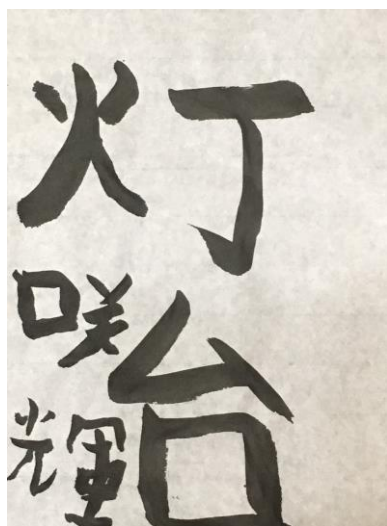 灯台
咲輝